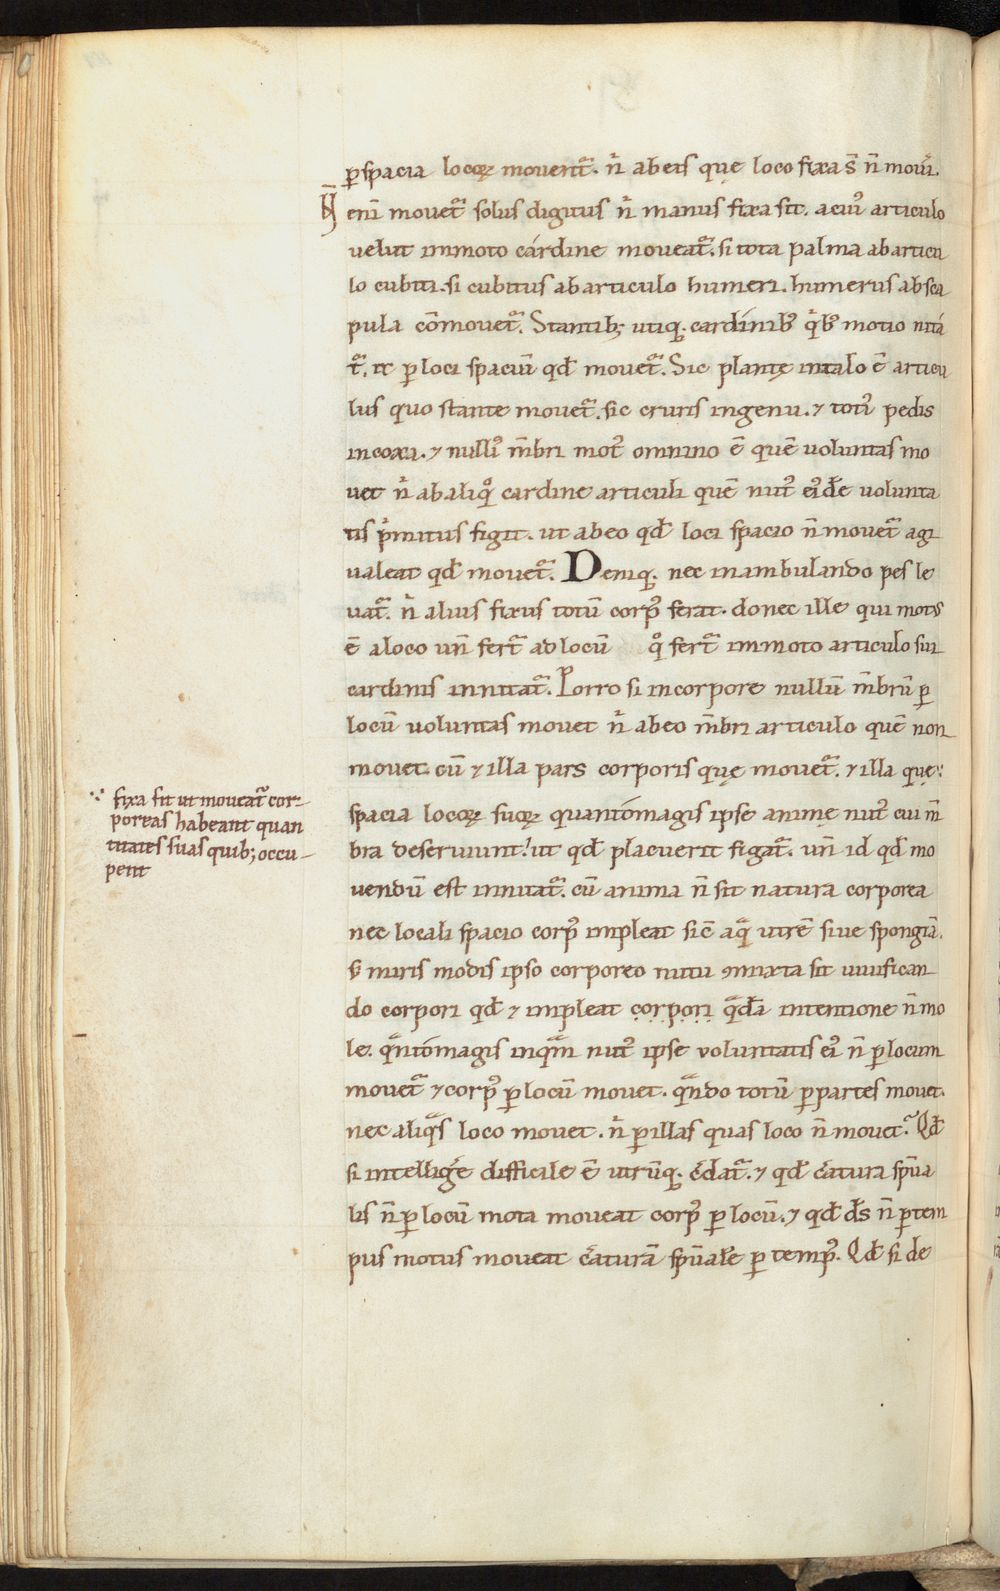 ꝑ spacia locoꝝ mouent᷑. n̓ ab eis quę loco fixa s̄ n̄ mouēri.
N̄ eni᷑ mouet᷑ solus digitus n̓ manus fixa sit. a cuiꝰ articulo
uelut inmoto cardine moueat᷑. si tota palma ab articu
lo cubiti. si cubitus ab articulo humeri. humerus ab sca
pula cōmouet᷑. Stantibꝫ utiqꝫ cardinibꝰ q̓bꝰ motio nita
t᷑. it ꝑ loci spaciū qd̄ mouet᷑. Sic plantę in talo ē articu
lus quo stante mouet᷑. sic cruris in genu. ⁊ totiꝰ pedis
in coxa. ⁊ nulliꝰ m̄bri motꝰ omnino ē quē uoluntas mo
uet n̓ ab aliqͦ cardine articuli quē nutꝰ eiꝰdē uolunta
tis p̓mitus figit. ut ab eo qd̄ loci spacio n̄ mouet᷑ agi
ualeat qd̄ mouet᷑. Deniqꝫ nec in ambulando pes le
uat᷑. n̓ alius fixus totū corpꝰ ferat. donec ille qui motꝰ
ē a loco un̄ fert᷑ ad locū qͦ fert᷑ inmoto articulo sui
cardinis innitat᷑. Porro si in corpore nullū m̄brū ꝑ
locū uoluntas mouet n̓ ab eo m̄bri articulo quē non
mouet. cū ⁊ illa pars corporis quę mouet᷑. ⁊ illa quę ∵
spacia locoꝝ suoꝝ quantomagis ipse animę nutꝰ cui m̄
bra deseruiunt! ut qd̄ placuerit figat᷑. un̄ id qd̄ mo
uendū est innitat᷑. cū anima n̄ sit natura corporea
nec locali spacio corpꝰ impleat sic̄ aqͣ utrē siue spongiā.
s; miris modis ipso corporeo nutu ꝯmixta sit uiuifican
do corpori qd̄ ⁊ impleat corpori qͣdā intentione n̄ mo
le. qͣntomagis inqͣm nutꝰ ipse uoluntatis eiꝰ n̄ ꝑ locum
mouet᷑ ⁊ corpꝰ ꝑ locū mouet. qͣndo totū ꝑ partes mouet.
nec aliqͣs loco mouet. n̓ ꝑ illas quas loco n̄ mouet᷑. Qd̄
si intelligēe difficile ē utrūqꝫ c̄dat᷑. ⁊ qd̄ c̄atura sp̄ua
lis n̄ ꝑ locū mota moueat corpꝰ ꝑ locū. ⁊ qd̄ d̄s n̄ ꝑ tem
pus motus moueat c̄aturā sp̄ualē ꝑ tempꝰ. Qd̄ si de
∵ fixa sit ut moueat᷑ cor-
poreas habeant quan
titates suas quibꝫ occu-
pent